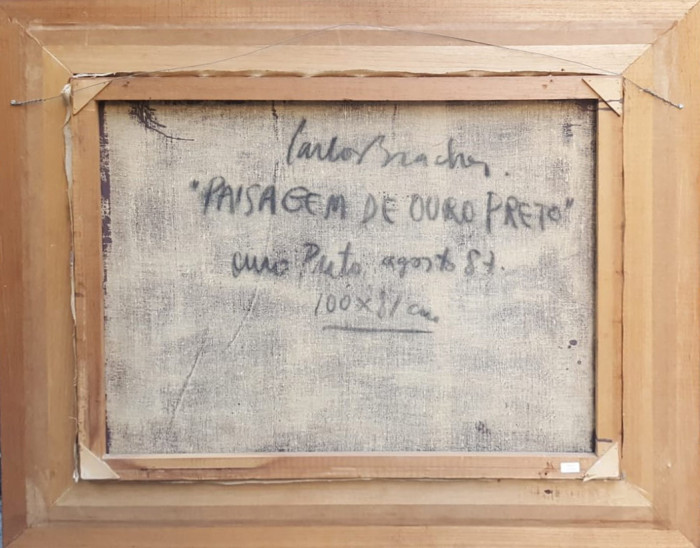 Carlos Bracher.
"PAISAGEM DE OURO PRETO"
ouro Preto agosto 87.
100x81 cm.